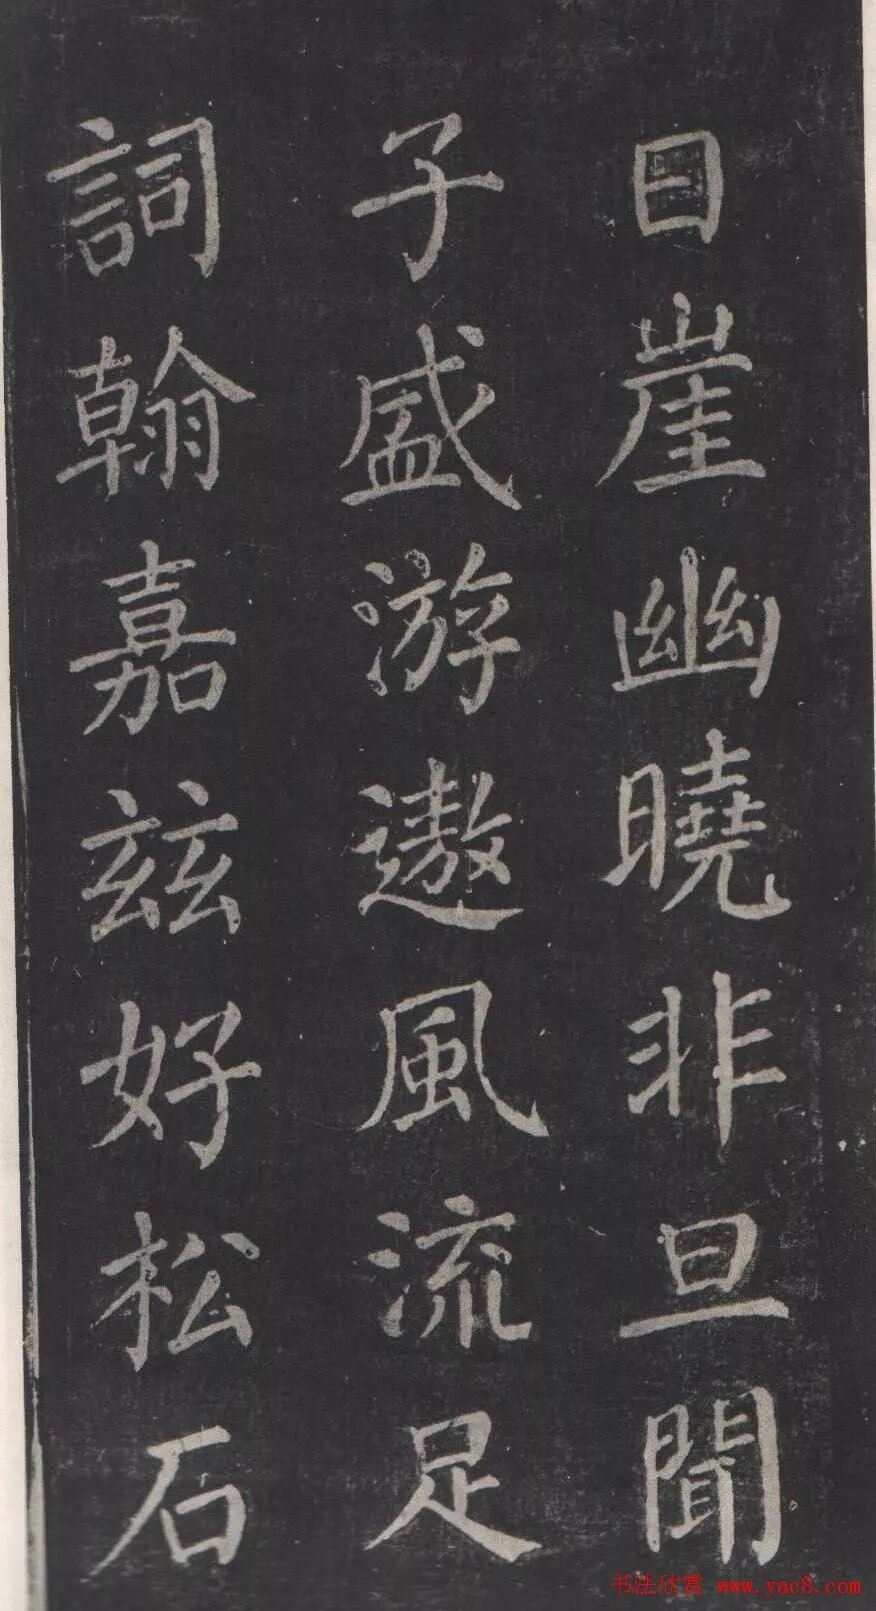 日崖幽曉非旦聞
子盛游遨風流足
詞翰嘉玆好松石
书法欣赏 www.yac8.com